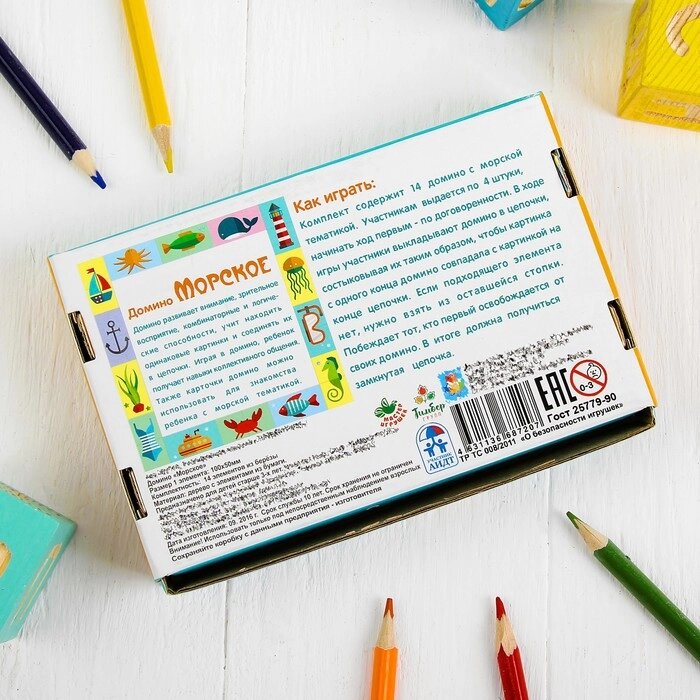 Домино МОРСКОЕ
Домино развивает внимание, зрительное
восприятие, комбинаторные и логиче-
ские способности, учит находить
одинаковые картинки и соединять их
в цепочки. Играя в домино, ребенок
получает навыки коллективного общения.
Также карточки домино можно
использовать для знакомства
ребенка с морской тематикой.
Как играть:
Комплект содержит 14 домино с морской
тематикой. Участникам выдается по 4 штуки,
начинать ход первым - по договоренности. В ходе
игры участники выкладывают домино в цепочки,
состыковывая их таким образом, чтобы картинка
с одного конца домино совпадала с картинкой на
конце цепочки. Если подходящего элемента
нет, нужно взять из оставшейся стопки.
Побеждает тот, кто первый освобождается от
своих домино. В итоге должна получиться
замкнутая цепочка.
Домино «Морское»
Размер 1 элемента: 100х50мм
Комплектность: 14 элементов из берёзы
Материал: дерево с элементами из бумаги.
Предназначено для детей старше 3-х лет.
Дата изготовления: 09. 2016 г. Срок службы 10 лет. Срок хранения не ограничен
Внимание! Использовать только под непосредственным наблюдением взрослых
Сохраняйте коробку с данными предприятия - изготовителя
мастер игрушек
Тимбер
ГРУПП
УЧАСТНИК
АИДТ
4 631136 687207
EAC
0-3
Гост 25779-90
ТР ТС 008/2011 «О безопасности игрушек»